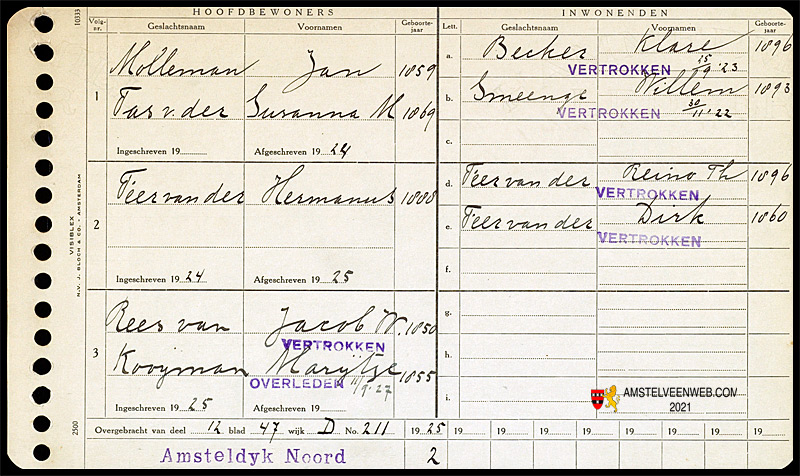 HOOFDBEWONERS INWONENDEN
Volg-nr. Geslachtsnaam Voornamen Geboorte-jaar Lett. Geslachtsnaam Voornamen Geboorte-jaar
10333
1
Molleman Jan 1859
Tas v. der Susanna M 1869
Ingeschreven 19 Afgeschreven 19 24
a. Becker Klare 1896
VERTROKKEN 15/9 '23
b. Smeenge Willem 1893
VERTROKKEN 30/11 '22
c.
2
Veer van der Hermanus 1888
Ingeschreven 19 24 Afgeschreven 19 25
d. Veer van der Reino Th 1896
VERTROKKEN
e. Veer van der Dirk 1860
VERTROKKEN
f.
3
Rees van Jacob W. 1850
VERTROKKEN
Kooyman Marijtje 1855
OVERLEDEN 11/9 '27
Ingeschreven 19 25 Afgeschreven 19
g.
h.
i.
VISIBLEX
N.V. J. BLOCH & CO. - AMSTERDAM
2500
AMSTELVEENWEB.COM
2021
Overgebracht van deel 12 blad 47 wijk D No. 211 19 25 19 19 19 19 19 19 19 19
Amsteldyk Noord 2